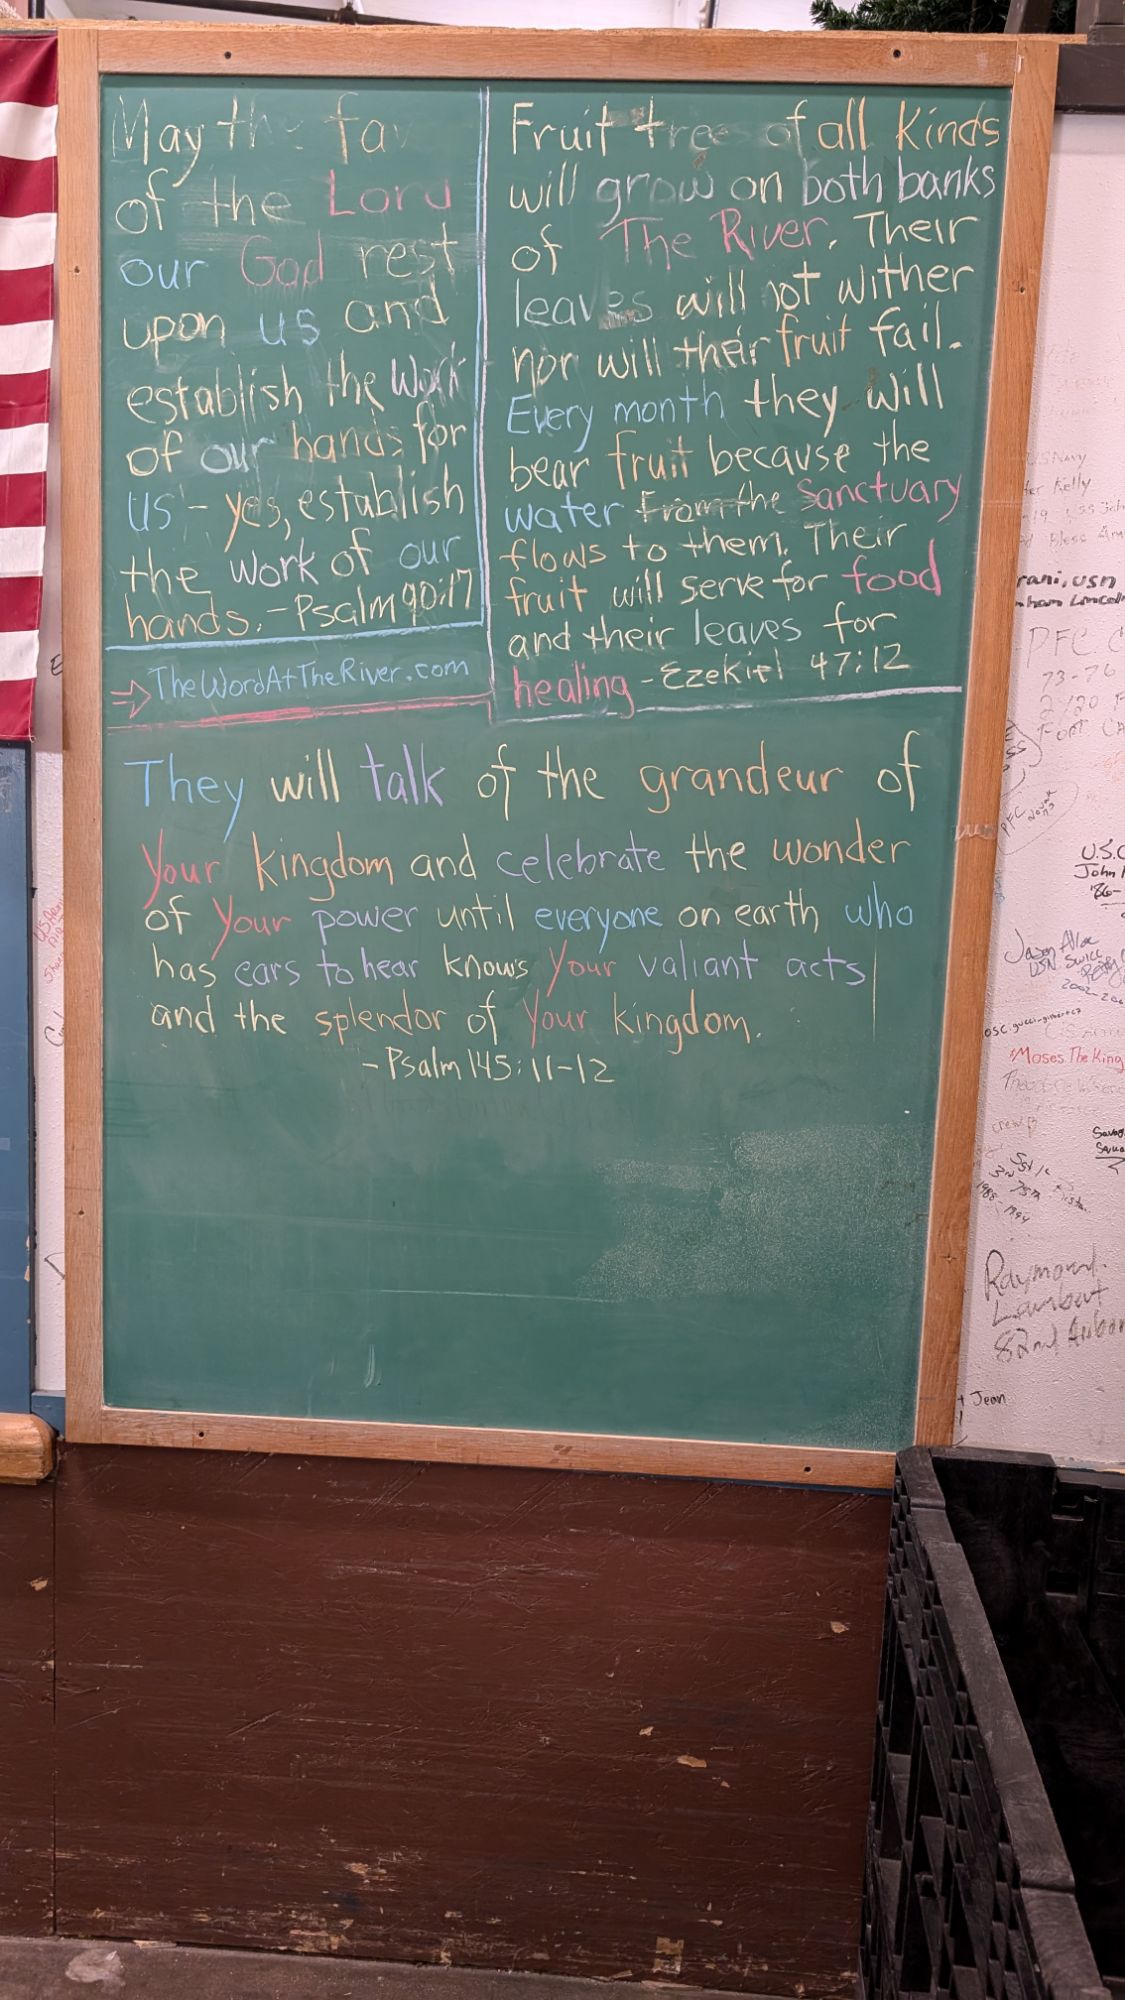 May the fav
of the Lord
our God rest
upon us and
establish the work
of our hands for
us - yes, establish
the work of our
hands. - Psalm 90:17
→ TheWordAtTheRiver.com
Fruit tree of all kinds
will grow on both banks
of The River. Their
leaves will not wither
nor will their fruit fail.
Every month they will
bear fruit because the
water from the Sanctuary
flows to them. Their
fruit will serve for food
and their leaves for
healing - Ezekiel 47:12
They will talk of the grandeur of
Your kingdom and celebrate the wonder
of Your power until everyone on earth who
has ears to hear knows Your valiant acts
and the splendor of Your kingdom.
- Psalm 145:11-12
US Navy
Kelly
rani, USN
ham Lincoln
PFC
73-76
PFC
John
'86-
2002-200
Moses The King
1986-1994
Raymond
Lambert
82nd Airbor
Jean